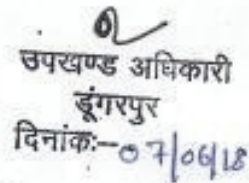 उपखण्ड अधिकारी
डूंगरपुर
दिनांकः-07/06/18